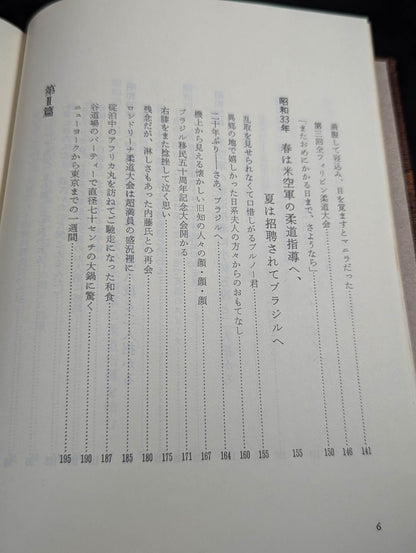 満腹して寝込み、目を覚ますとマニラだった 141
第三回全フィリピン柔道大会 146
「またおめにかかる日まで、さようなら」 150
昭和33年　春は米空軍の柔道指導へ、
夏は招聘されてブラジルへ 155
乱取を見せられなくて口惜しがるブルノー君 155
異郷の地で嬉しかった日系夫人の方々からのおもてなし 160
二十年ぶり――さあ、ブラジルへ 164
機上から見える懐かしい旧知の人々の顔・顔・顔 167
ブラジル移民五十周年記念大会開かる 171
右膝をまた捻挫して泣く思い 175
残念だが、淋しさもあった内藤氏との再会 180
ロンドリーナ柔道大会は超満員の盛況裡に 185
碇泊中のアフリカ丸を訪ねてご馳走になった和食 187
谷道場のパーティーで直径七十センチの大鍋に驚く 190
ニューヨークから東京までの一週間 195
第Ⅱ篇
6